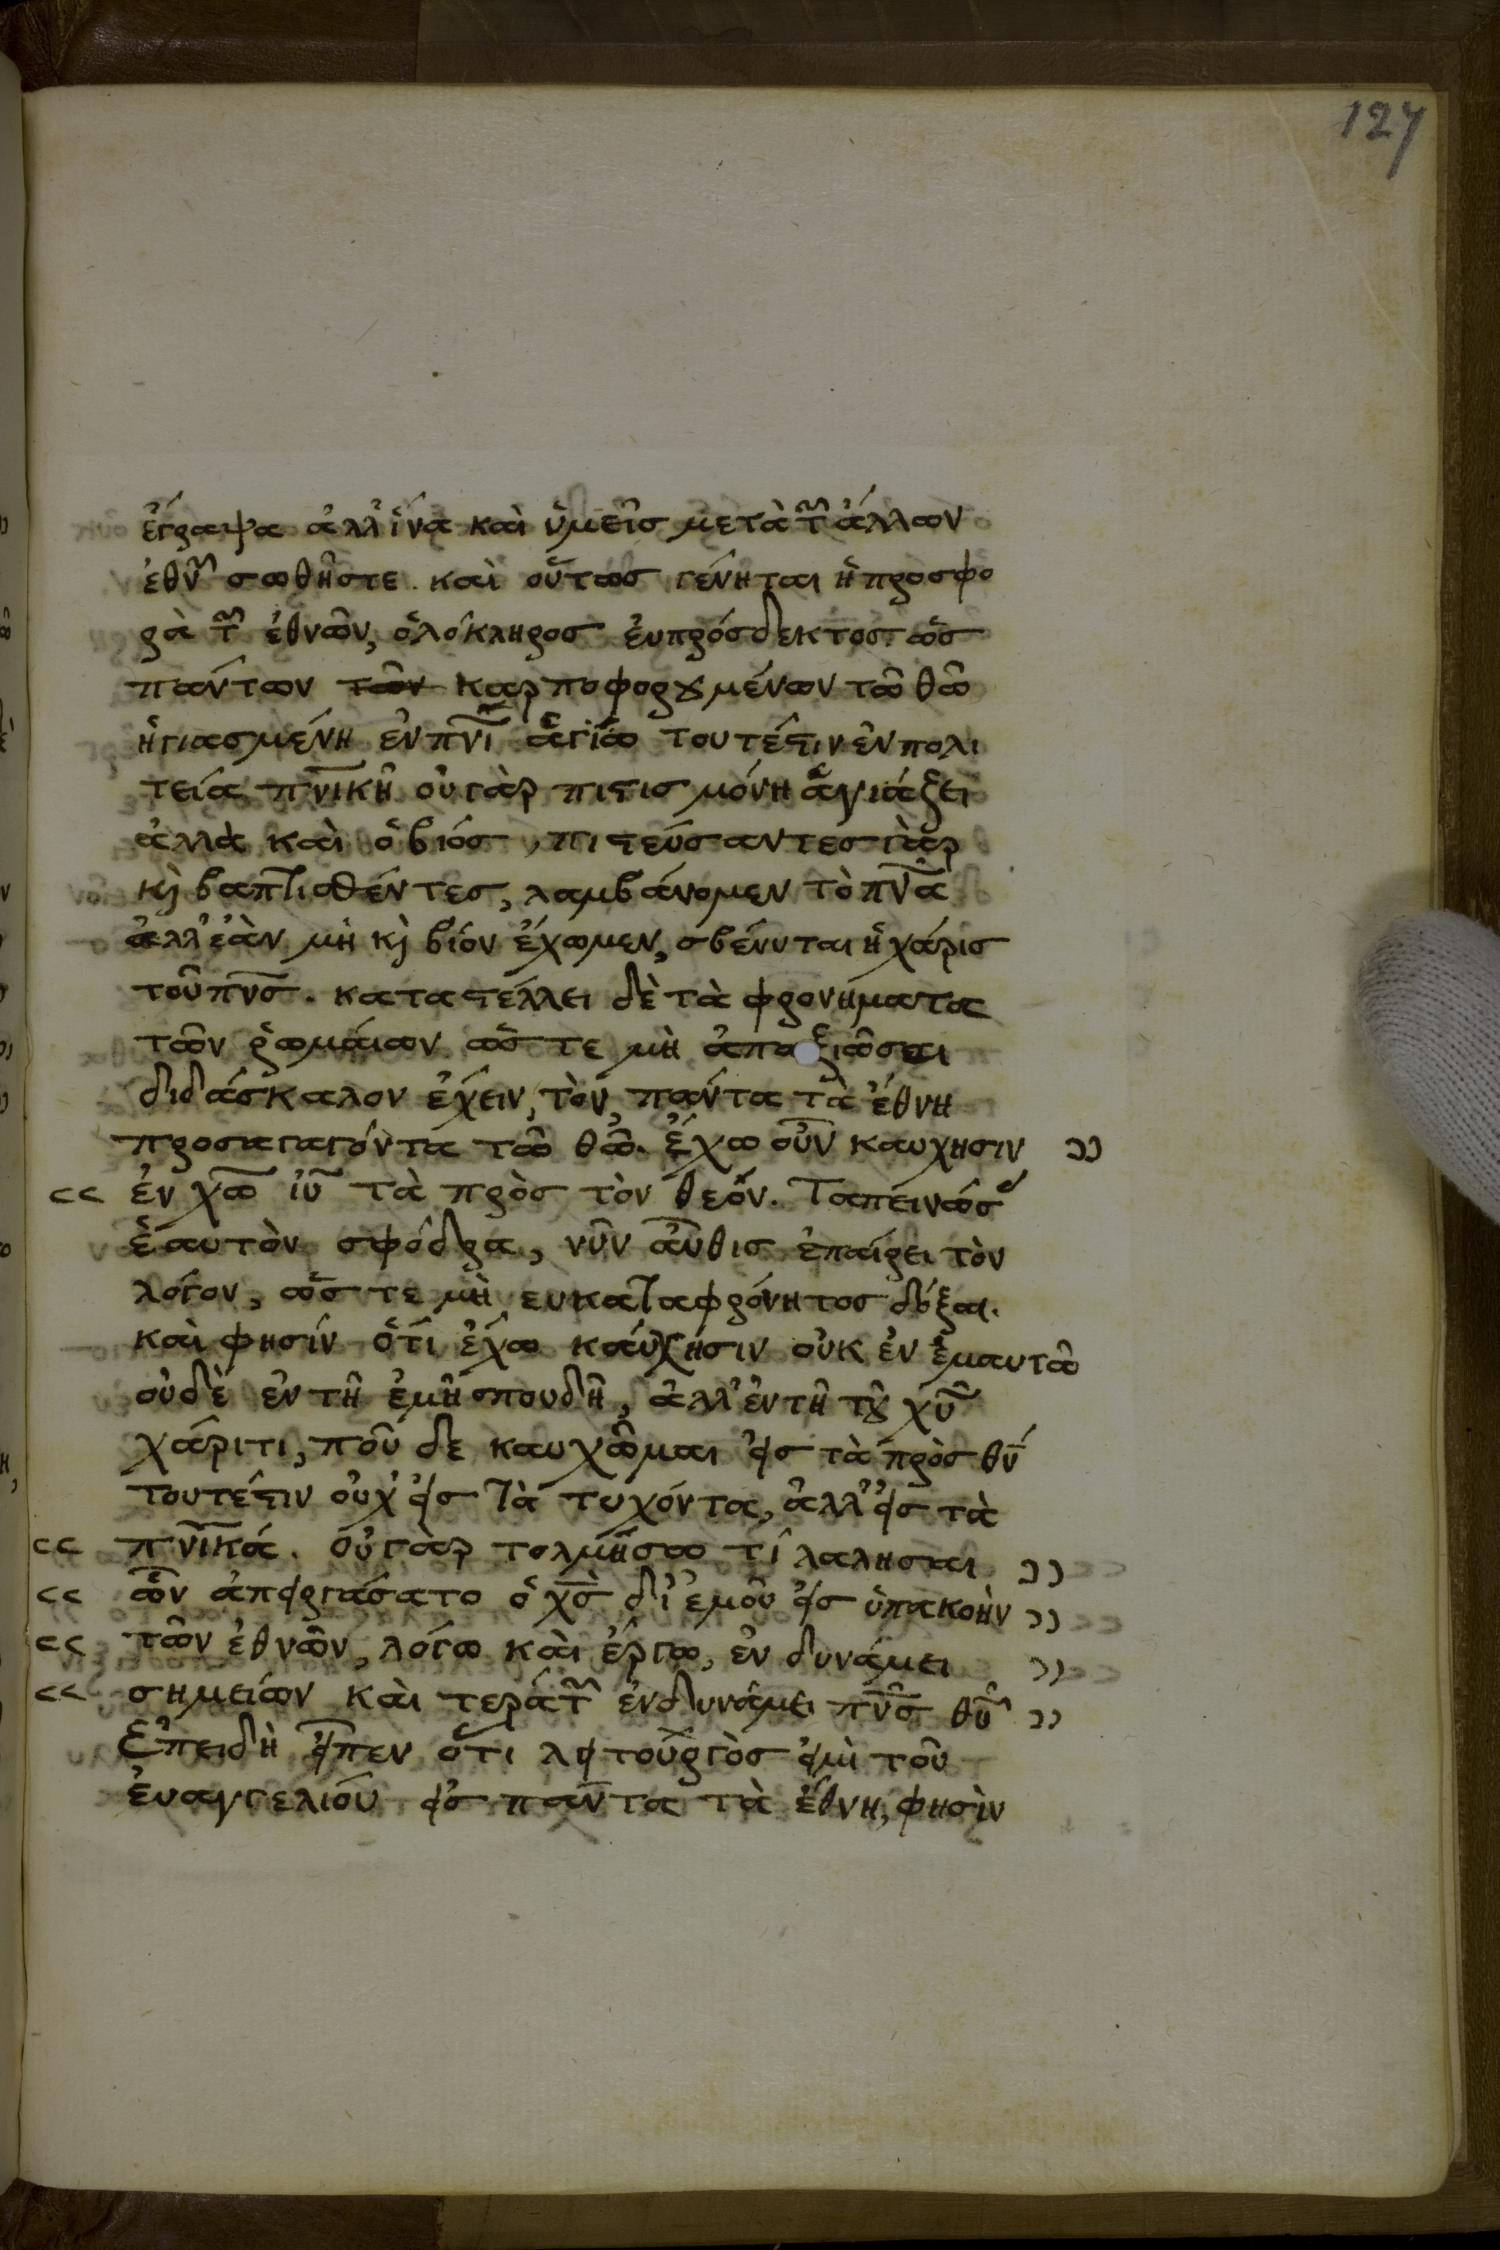 127
ἔγραψα ἀλλ' ἵνα καὶ ὑμεῖς μετὰ τῶν ἄλλων
ἐθνῶν σωθῆστε. καὶ οὕτως γένηται ἡ προσφο
ρὰ τῶν ἐθνῶν, ὁλόκληρος ἐυπρόσδεκτος. ὡς
πάντων τῶν καρποφορουμένων τῶ θῶ
ἡγιασμένη ἐν πνι ἁγίω τουτέστιν ἐν πολι
τεία πνικῆ οὐ γὰρ πίστις μόνη ἁγιάζει
ἀλλὰ καὶ ὁ βιός, πιστεύσαντες γὰρ
κὶ βαπτισθέντες, λαμβάνομεν τὸ πνα
ἀλλ' ἐὰν μὴ κὶ βίον ἔχωμεν, σβέννυται ἡ χάρις
τοῦ πνς. καταστέλλει δὲ τὰ φρονήματα
τῶν ῥωμάιων ὥστε μὴ ἀπαξιῶσαι
διδάσκαλον ἔχειν, τὸν πάντα τὰ ἔθνη
προσαγαγόντα τῶ θῶ. ἔχω οὖν καυχησιν ))
<< ἐν χω ιυ τὰ πρὸς τὸν θεόν. Ταπεινώσ
ἑαυτὸν σφόδρα, νῦν αὖθις ἐπαίρει τὸν
λόγον, ὥστε μὴ ευκαταφρόνητος δόξαι.
καὶ φησίν ὅτι ἔχω καύχησιν οὐκ ἐν ἐμαυτῶ
οὐδὲ ἐν τῆ ἐμῆ σπουδῆ, ἀλλ' ἐν τῆ τοῦ χυ
χάριτι, ποῦ δε καυχῶμαι εἰς τὰ πρὸς θν
τουτέστιν οὐχ εἰς τὰ τυχόντα, ἀλλ' εἰς τὰ
<< πνικά. οὐ γὰρ τολμήσω τί λαλησαι ))
<< ὧν ἀπειργάσατο ὁ χς δι' ἐμοῦ εἰς ὑπακοὴν ))
<< τῶν ἐθνῶν, λόγω καὶ ἔργω, ἐν δυνάμει ))
<< σημείων καὶ τεράτων ἐν δυνάμει πνς θυ ))
Ἐπειδὴ εἶπεν ὅτι λειτουργὸς εἰμὶ τοῦ
ἐυαγγελίου εἰς πάντα τὰ ἔθνη, φησὶν